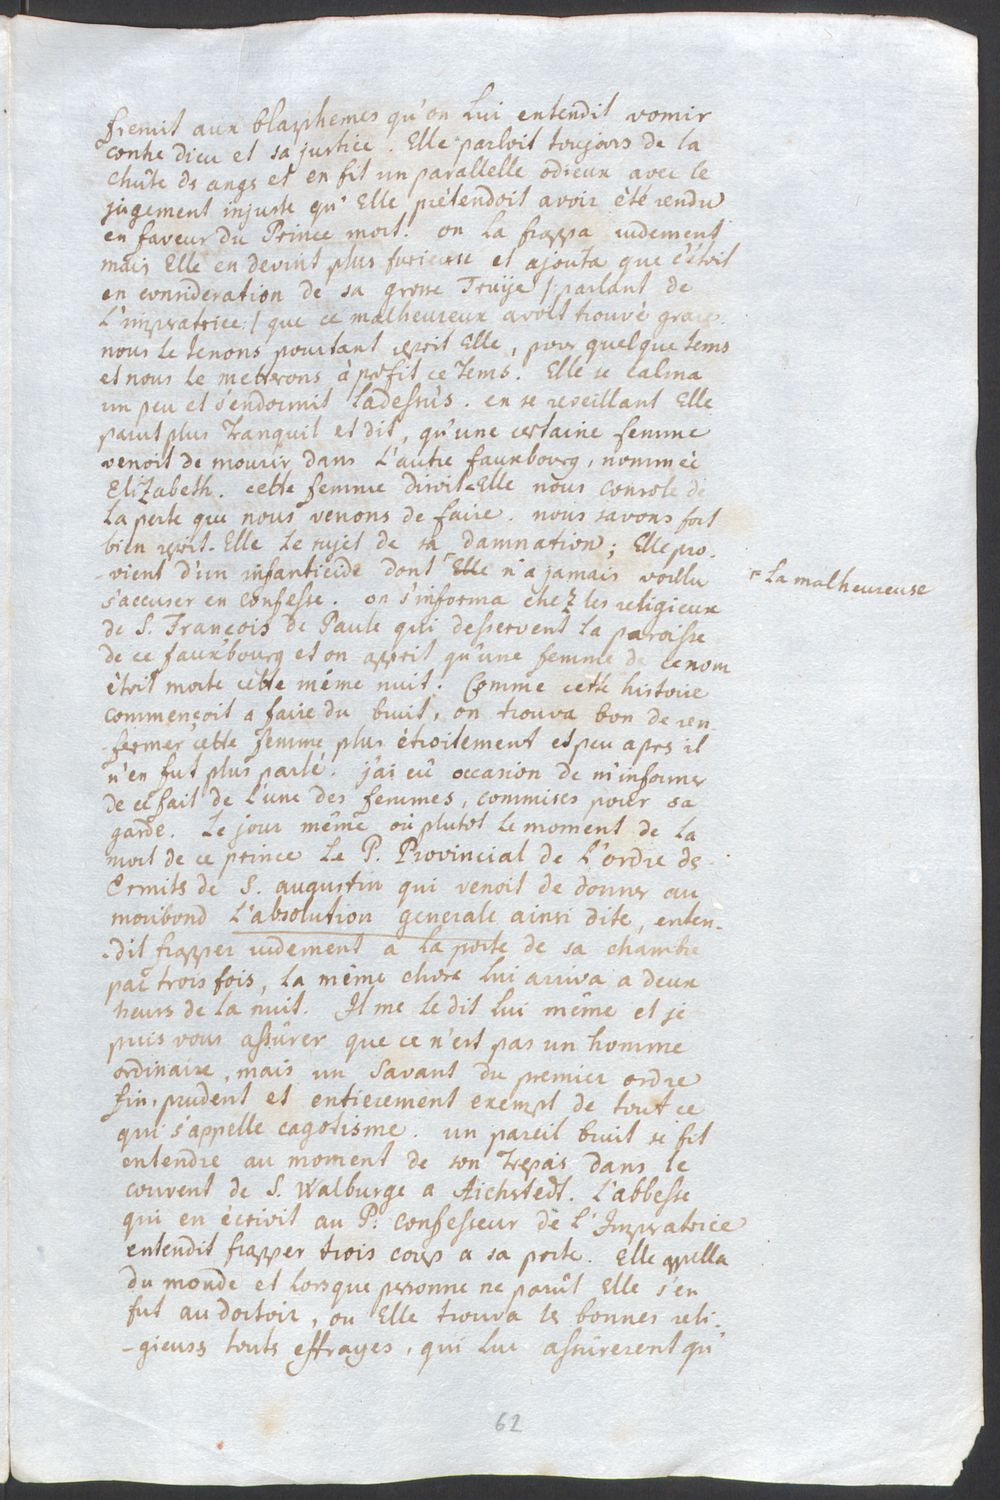 fremit aux blasphemes qu'on Lui entendit vomir
contre dieu et sa justice. Elle parloit toujours de la
chûte ds angs et en fit un parallelle odieux avec le
jugement injuste qu'Elle prétendoit avoir été rendu
en faveur du Prince mort. on La frappa rudement
mais Elle en devint plus furieuse et ajouta que c'étoit
en consideration de sa grosse Truije /: parlant de
L'impratrice :/ que ce malheureux avoit trouvé grace.
nous le tenons pourtant reprit Elle, pour quelque tems
et nous le metterons à profit ce Tems. Elle se calma
un peu et s'endormit Ladessus. en se reveillant Elle
parut plus Tranquil et dit, qu'une certaine femme
venoit de mourir dans L'autre fauxbourg, nommée
EliZabeth. cette femme disoit-Elle nous console de
La perte que nous venons de faire. nous savons fort
bien reprit-Elle Le sujet de sa damnation; Elle pro-
-vient d'un infanticide dont Elle n'a jamais voulu
⌜La malheureuse
s'accuser en confesse. on s'informa cheZ les religieux
de S. François de Paule qui desservent La paroisse
de ce fauxbourg et on apprit qu'une femme de ce nom
étoit morte cette même nuit. Comme cette histoire
commençoit a faire du bruit, on trouva bon de ren
-fermer cette femme plus étroitement et peu aprs il
n'en fut plus parlé. j'ai eû occasion de m'informer
de ce fait de L'une des femmes, commises pour sa
garde. Le jour même ou plutot Le moment de La
mort de ce prince Le P. Provincial de L'ordre ds
Ermits de S. augustin qui venoit de donner au
moribond L'absolution generale ainsi dite, enten-
-dit frapper rudement a La porte de sa chambre
par trois fois, La même chose Lui arriva a deux
heurs de La nuit. Il me Le dit Lui même et je
puis vous assûrer que ce n'est pas un homme
ordinaire, mais un Savant du premier ordre
fin, prudent et entierement exempt de tout ce
qui s'appelle cagotisme. un pareil bruit se fit
entendre au moment de son Trepas dans le
couvent de S. Walburge a Aichstedt. L'abbesse
qui en écrivit au P: confesseur de L'Impratrice
entendit frapper trois coups a sa porte. Elle appella
du monde et Lorsque personne ne parût Elle s'en
fut au dortoir, ou Elle trouva Ls bonnes reli-
-gieuss touts effrayes, qui Lui assûrerent qu'
62